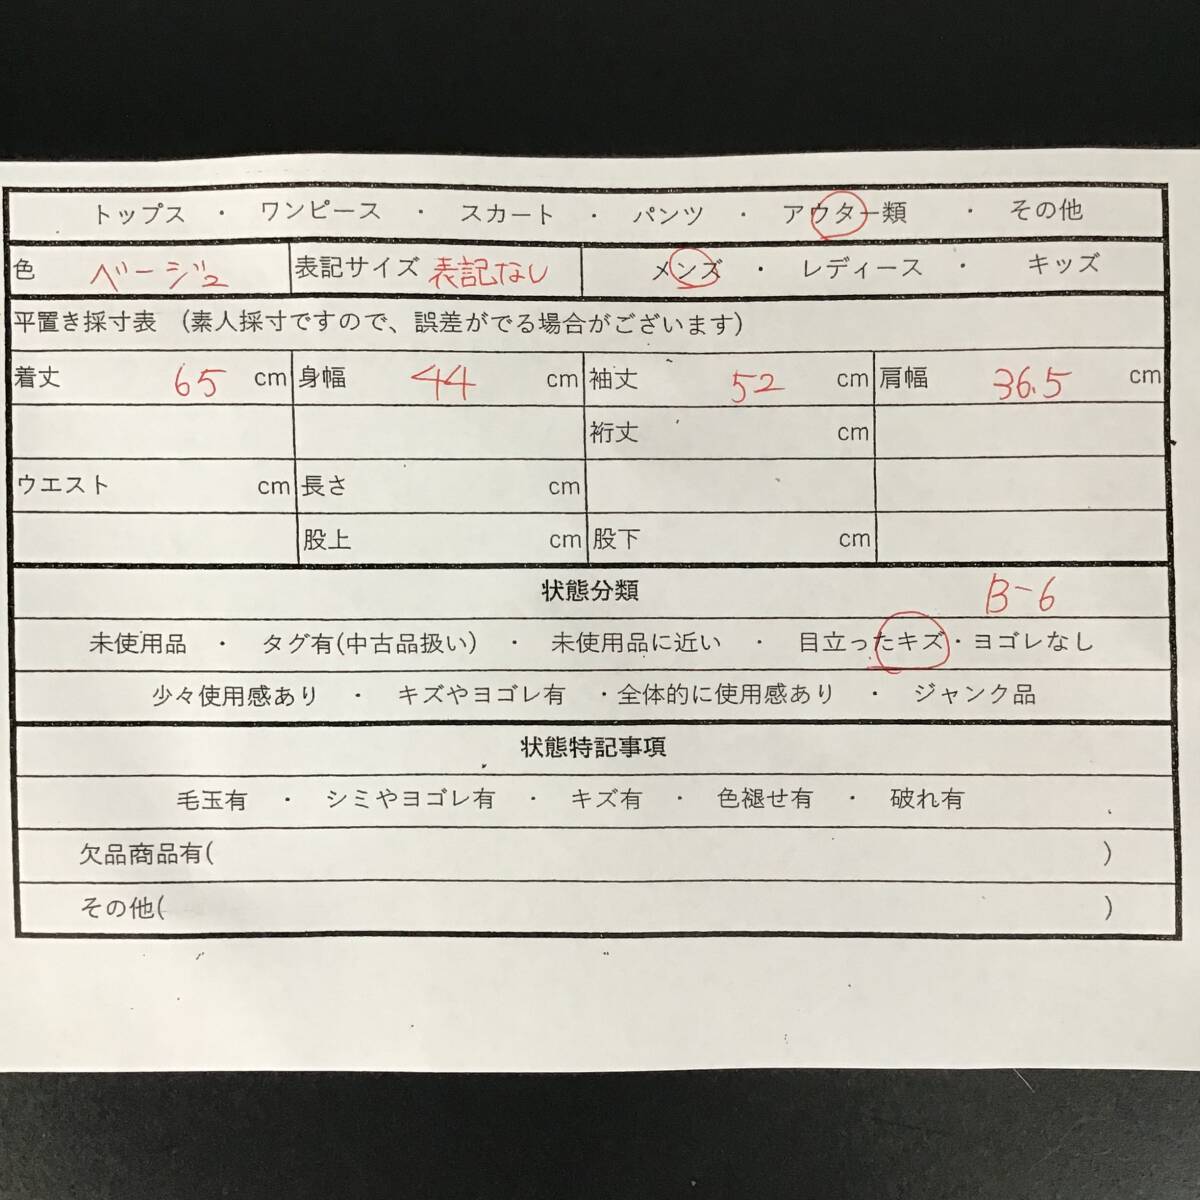 トップス ・ ワンピース ・ スカート ・ パンツ ・ アウター類 ・ その他
色 ベージュ 表記サイズ 表記なし メンズ ・ レディース ・ キッズ
平置き採寸表 (素人採寸ですので、誤差がでる場合がございます)
着丈 65 cm 身幅 44 cm 袖丈 52 cm 肩幅 36.5 cm
裄丈 cm
ウエスト cm 長さ cm
股上 cm 股下 cm
状態分類 B-6
未使用品 ・ タグ有(中古品扱い) ・ 未使用品に近い ・ 目立ったキズ・ヨゴレなし
少々使用感あり ・ キズやヨゴレ有 ・全体的に使用感あり ・ ジャンク品
状態特記事項
毛玉有 ・ シミやヨゴレ有 ・ キズ有 ・ 色褪せ有 ・ 破れ有
欠品商品有( )
その他( )